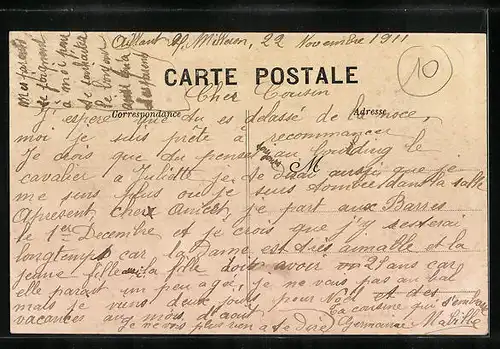 Aillant s/ Milleron, 22 Novembre 1911
mes parents
se joignent
à moi pour
te souhaiter
le bonjour
ainsi qu'à
CARTE POSTALE
Correspondance
Adresse
10
Cher Cousin
J'espère que du es délassé de la noce,
moi je suis prête à recommancer
Je crois que du penses au le
M
cavalier à Juliette, je te dirai aussi que je
me sens plus où je suis tombée dans la salle
Apresent cher André, je part aux Barres
le 1er Decembre et je crois que j'y resterai
longtemps car la Dame est très aimable et la
jeune fille aussi la fille doit avoir 21 ans car
elle parait un peu agé, je ne vais pas au bal
mais je viens deux jours pour Noël et des
vacances au mois d'août
ta cousine qui t'embrasse
je ne vois plus rien a te dire
Germaine Mabille